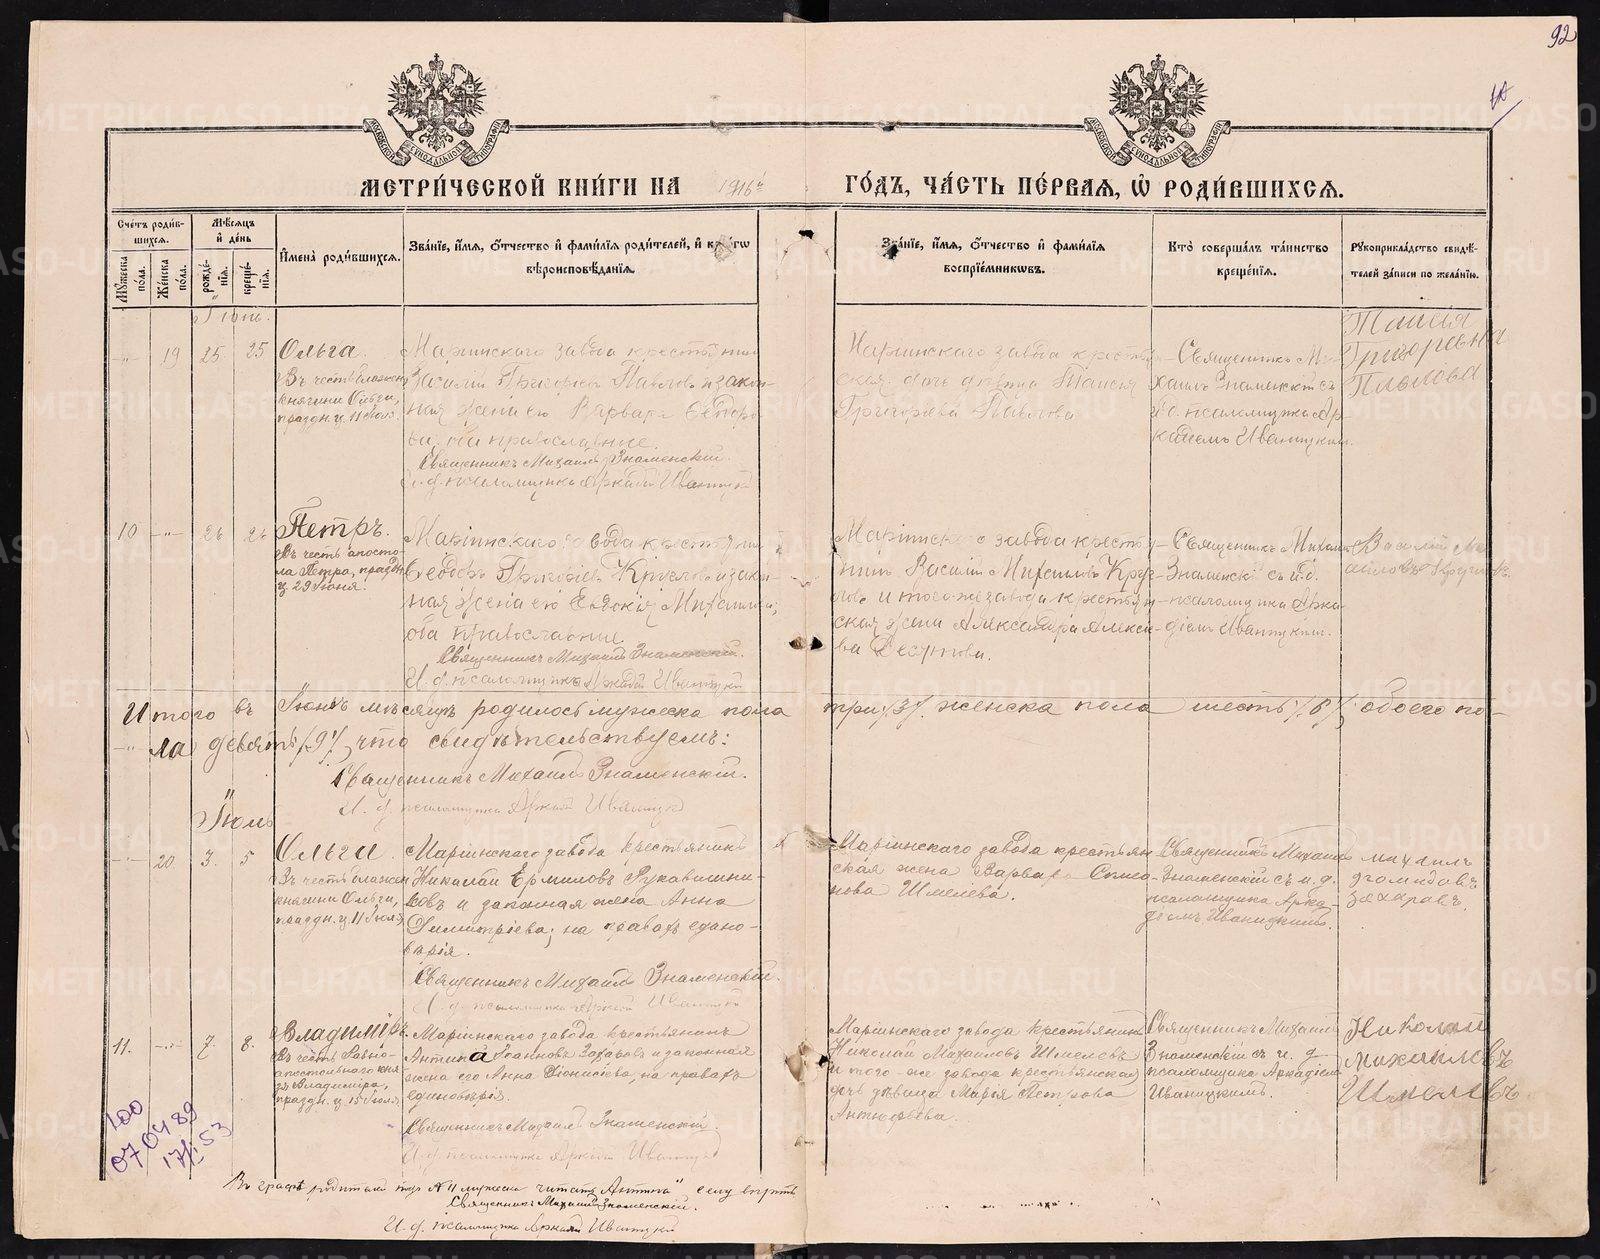 92
МЕТРИ́ЧЕСКОЙ КНИ́ГИ НА 1916й ГО́ДЪ, ЧА́СТЬ ПЕ́РВАЯ, Ѡ҆ РОДИ́ВШИХСЯ.
Сче́тъ роди́вшихся.
Мѹ́жеска по́ла.
Же́нска по́ла.
Мѣ́сяцъ и҆ де́нь
рожде́нїя.
креще́нїя.
И҆мена̀ роди́вшихся.
Зва́нїе, и҆́мя, ѻ҆́тчество и҆ фами́лїя роди́телей, и҆ како́гѡ
вѣроисповѣ́данїя.
Зва́нїе, и҆́мя, ѻ҆́тчество и҆ фами́лїя
воспрїе́мниковъ.
Кто̀ соверша́лъ та́инство
креще́нїя.
Рꙋкоприкла́дство свидѣ́-
телей за́писи по жела́нїю.
Іюнь.
19 25 25
Ольга.
Въ честь блажен.
княгини Ольги,
праздн. ц. 11 Іюля.
Маріинскаго завода крестьянинъ
Василій Григорьевъ Павловъ и закон-
ная жена его Варвара Ѳеодоро-
ва, оба православные.
Священникъ Михаилъ Знаменскій.
И. д. псаломщика Аркадій Иваницкій
Маріинскаго завода крестьян-
ская дочь дѣвица Таисія
Григорьева Павлова
Священникъ Ми-
хаилъ Знаменскій съ
и. д. псаломщика Ар-
кадіемъ Иваницкимъ.
Таисія
Григорьевна
Павлова
10 26 26
Петръ.
Въ честь апосто-
ла Петра, праздн.
ц. 29 Іюня.
Маріинскаго завода крестьянинъ
Ѳеодоръ Григорьевъ Кругловъ и закон-
ная жена его Евдокія Михаилова,
оба православные
Священникъ Михаилъ Знаменскій.
И. д. псаломщика Аркадій Иваницкій
Маріинскаго завода крестья-
нинъ Василій Михаиловъ Круг-
ловъ и того-же завода крестьян-
ская жена Александра Алексѣе-
ва
Священникъ Михаилъ
Знаменскій съ и. д.
псаломщика Арка-
діемъ Иваницкимъ.
Василій Ми
хайловъ Кругловъ
Итого въ Іюнѣ мѣсяцѣ родилось мужеска пола три /3/, женска пола шесть /6/, обоего по-
ла девять /9/, что свидѣтельствуемъ:
Священникъ Михаилъ Знаменскій.
И. д. псаломщика Аркадій Иваницкій
Іюль
20 3. 5
Ольга.
Въ честь блажен
княгини Ольги,
праздн. ц. 11 Іюля
Маріинскаго завода крестьянинъ
Николай Ермиловъ Рукавишни-
ковъ и законная жена Анна
Димитріева, на правахъ едино-
вѣрія.
Священникъ Михаилъ Знаменскій.
И. д. псаломщика Аркадій Иваницкій
Маріинскаго завода крестьян
ская жена Варвара Симо-
нова Шмелева.
Священникъ Михаилъ
Знаменскій съ и. д.
псаломщика Арка-
діемъ Иваницкимъ.
михаилъ
захаравъ.
11. 7. 8.
Владиміръ.
Въ честь Равно-
апостольнаго кня-
зя Владиміра,
праздн. ц. 15 Іюля
Маріинскаго завода крестьянинъ
Антипа Іоанновъ Захаровъ и законная
жена его Анна Діонисіева, на правахъ
единовѣрія.
Священникъ Михаилъ Знаменскій.
И. д. псаломщика Аркадій Иваницкій
Маріинскаго завода крестьянинъ
Николай Михаиловъ Шмелевъ
и того-же завода крестьянская
дочь дѣвица Марія Петрова
Антюфѣева.
Священникъ Михаилъ
Знаменскій съ и. д.
псаломщика Аркадіемъ
Иваницкимъ.
Николай
михайловъ
Шмелевъ
100
070489
17/I 53
Въ графѣ родители подъ № 11 мужеска читать „Антипа" сему вѣрить
Священникъ Михаилъ Знаменскій.
И. д. псаломщика Аркадій Иваницкій
METRIKI.GASO-URAL.RU